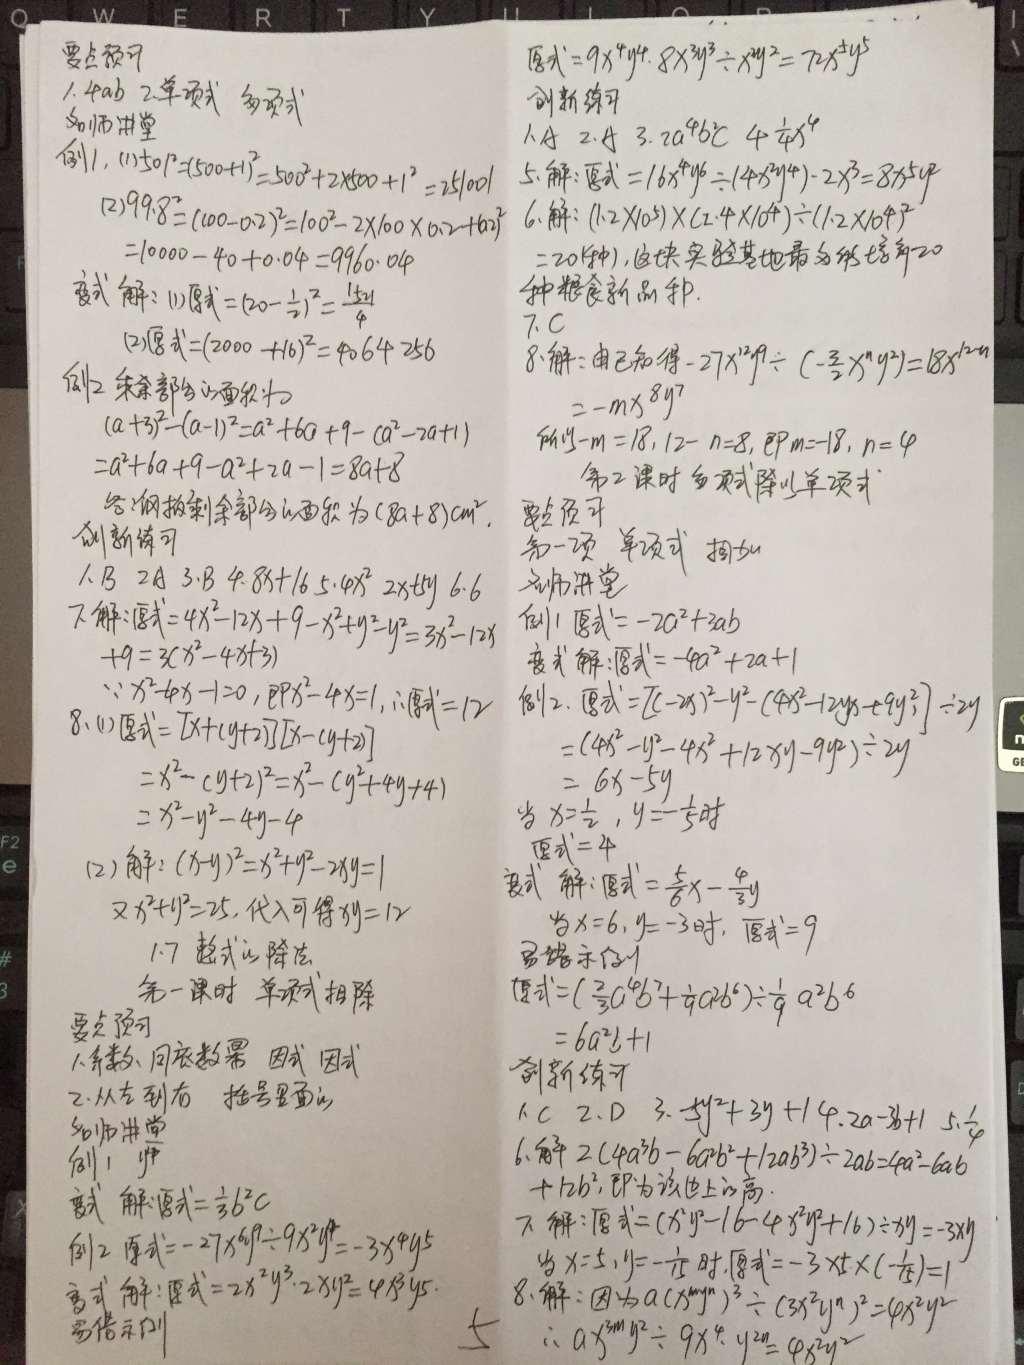 要点预习
1.4ab 2.单项式 多项式
名师讲堂
例1,(1)501²=(500+1)²=500²+2×500+1²=251001
(2)99.8²=(100-0.2)²=100²-2×100×0.2+(0.2)²
=10000-40+0.04=9960.04
变式 解:(1)原式=(20-1/2)²=1521/4
(2)原式=(2000+16)²=4064256
例2 剩余部分的面积为
(a+3)²-(a-1)²=a²+6a+9-(a²-2a+1)
=a²+6a+9-a²+2a-1=8a+8
答:钢板剩余部分的面积为(8a+8)cm².
创新练习
1.B 2A 3.B 4.8x+16 5.4x² 2x+5y 6.6
7.解:原式=4x²-12x+9-x²+y²-y²=3x²-12x
+9=3(x²-4x+3)
∵x²-4x-1=0,即x²-4x=1,∴原式=12
8.(1)原式=[x+(y+2)][x-(y+2)]
=x²-(y+2)²=x²-(y²+4y+4)
=x²-y²-4y-4
(2)解:(x-y)²=x²+y²-2xy=1
又x²+y²=25,代入可得xy=12
1.7 整式的除法
第一课时 单项式相除
要点预习
1.系数、同底数幂 因式 因式
2.从左到右 括号里面的
名师讲堂
例1
变式 解:原式=1/3b²c
例2 原式=-27x⁶y⁹÷9x²y⁴=-3x⁴y⁵
变式 解:原式=2x²y³·2xy²=4x³y⁵.
易错示例
5
原式=9x⁴y⁴·8x³y³÷x²y²=72x⁵y⁵
创新练习
1.A 2.A 3.2a⁴b²c 4 1/4x⁴
5.解:原式=16x⁴y⁶÷(4x²y⁴)·2x³=8x⁵y²
6.解:(1.2×10⁵)×(2.4×10⁴)÷(1.2×10⁴)²
=20(种),这块实验基地最多能培育20
种粮食新品种.
7.C
8.解:由已知得-27x¹²y⁹÷(-3/2xⁿy²)=18x¹²⁻ⁿ
=-mx⁸y⁷
所以-m=18,12-n=8,即m=-18,n=4
第2课时 多项式除以单项式
要点预习
每一项 单项式 相加
名师讲堂
例1原式=-2a²+3ab
变式 解:原式=-4a²+2a+1
例2.原式=[(-2x)²-y²-(4x²-12yx+9y²)]÷2y
=(4x²-y²-4x²+12xy-9y²)÷2y
=6x-5y
当x=1/2,y=-1/5时
原式=4
变式 解:原式=5/6x-4/3y
当x=6,y=-3时,原式=9
易错示例
原式=(2/3a⁴b⁷+1/9a²b⁶)÷1/9a²b⁶
=6a²b+1
创新练习
1.C 2.D 3.-5y²+3y+1 4.2a-3b+1 5.1/4
6.解 2(4a³b-6a²b²+12ab³)÷2ab=4a²-6ab
+12b²,即为该边上的高.
7.解:原式=(x²y²-16-4x²y²+16)÷xy=-3xy
当x=5,y=-1/15时,原式=-3×5×(-1/15)=1
8.解:因为a(xᵐyⁿ)³÷(3x²yⁿ)²=4x²y²
∴ax³ᵐy²÷9x⁴·y²ⁿ=4x²y²